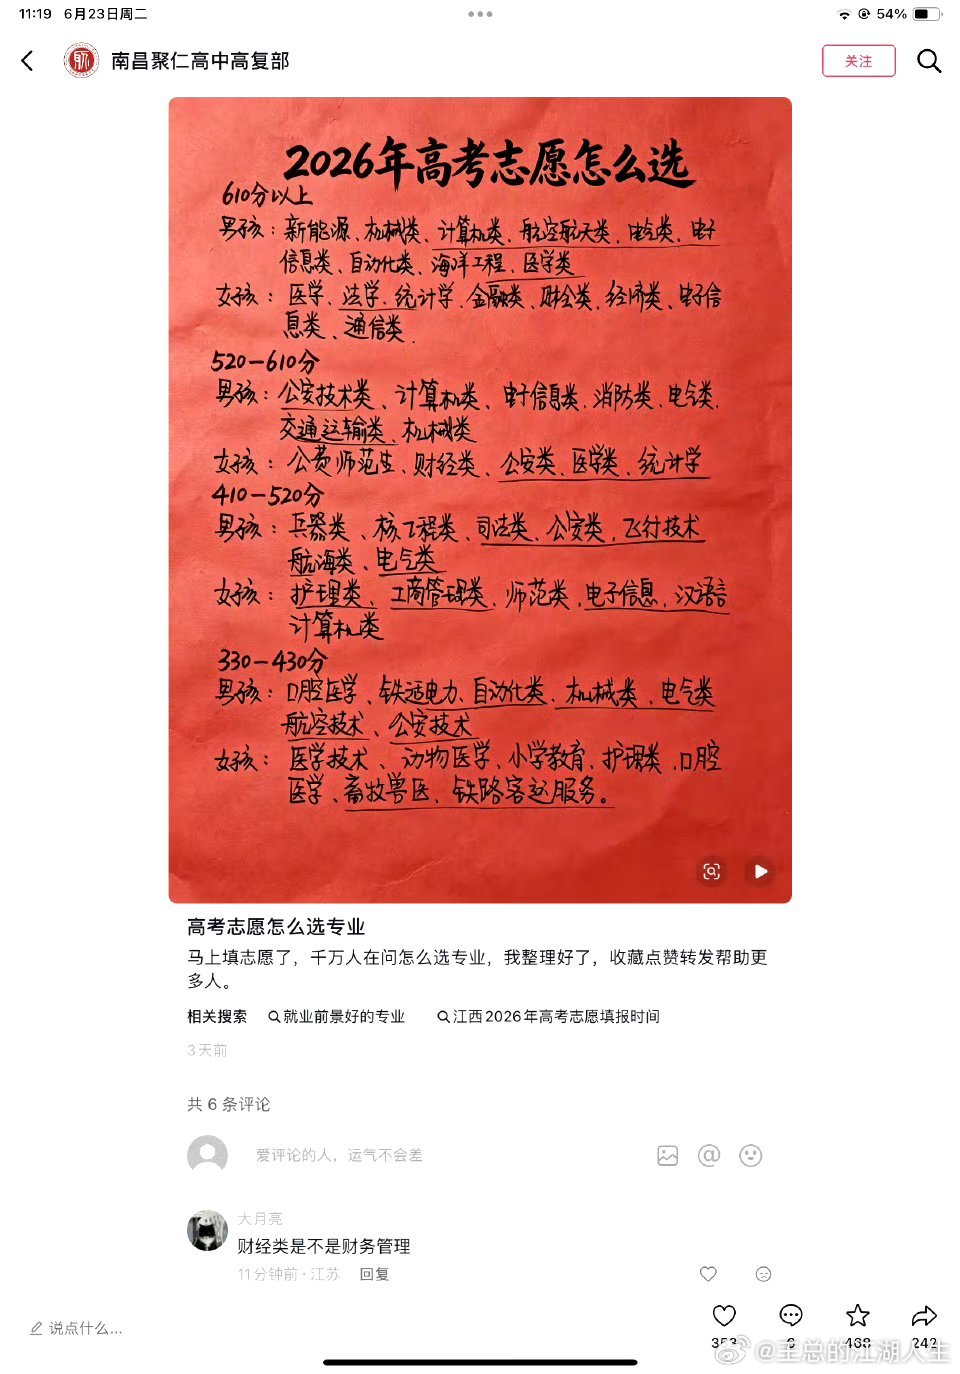 11:19 6月23日周二
54%
南昌聚仁高中高复部
关注
2026年高考志愿怎么选
610分以上
男孩：新能源、机械类、计算机类、航空航天类、电气类、电子
信息类、自动化类、海洋工程、医学类
女孩：医学、法学、统计学、金融类、财会类、经济类、电子信
息类、通信类.
520—610分
男孩：公安技术类、计算机类、电子信息类、消防类、电气类、
交通运输类、机械类
女孩：公费师范生、财经类、公安类、医学类、统计学
410—520分
男孩：兵器类、核工程类、司法类、公安类、飞行技术
航海类、电气类
女孩：护理类、工商管理类、师范类、电子信息、汉语言
计算机类
330—430分
男孩：口腔医学、铁道电力、自动化类、机械类、电气类
航空技术、公安技术
女孩：医学技术、动物医学、小学教育、护理类、口腔
医学、畜牧兽医、铁路客运服务。
高考志愿怎么选专业
马上填志愿了，千万人在问怎么选专业，我整理好了，收藏点赞转发帮助更
多人。
相关搜索 就业前景好的专业 江西2026年高考志愿填报时间
3天前
共 6 条评论
爱评论的人，运气不会差
大月亮
财经类是不是财务管理
11分钟前·江苏 回复
说点什么...
353 6 468 242
@王总的江湖人生